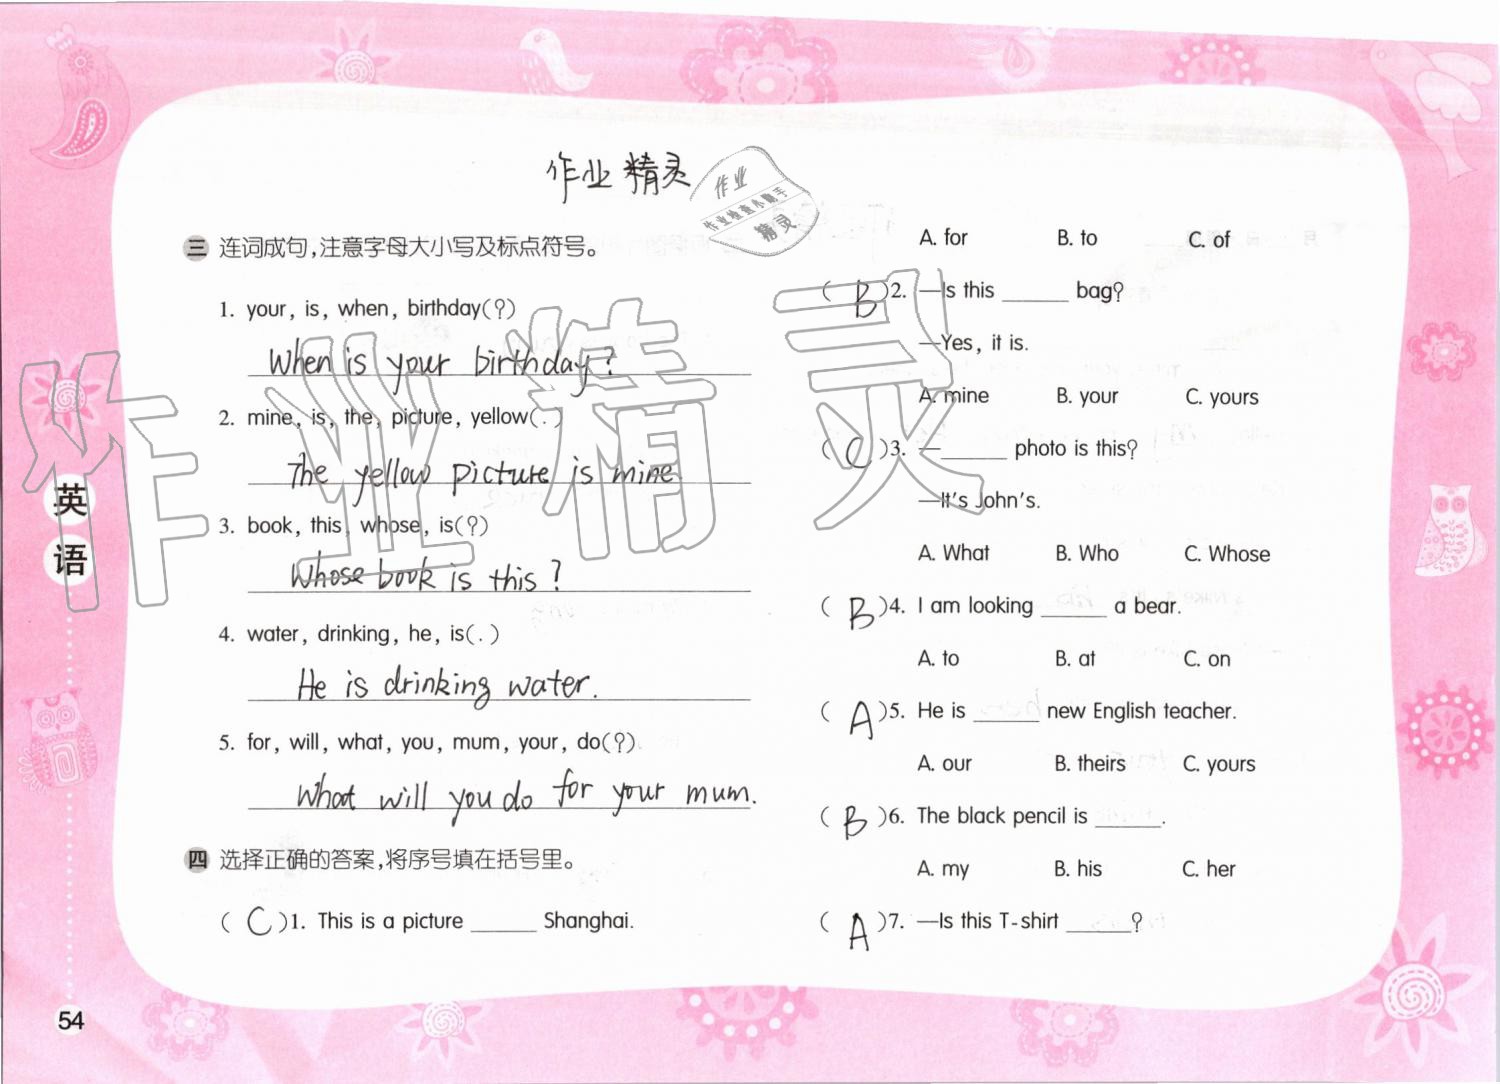 作业精灵
作业
作业检查小助手
精灵
三 连词成句,注意字母大小写及标点符号。
1. your, is, when, birthday(?)
When is your birthday?
2. mine, is, the, picture, yellow(.)
The yellow picture is mine
3. book, this, whose, is(?)
Whose book is this?
4. water, drinking, he, is(.)
He is drinking water.
5. for, will, what, you, mum, your, do(?)
What will you do for your mum.
四 选择正确的答案,将序号填在括号里。
( C )1. This is a picture ______ Shanghai.
A. for B. to C. of
( B )2. —Is this ______ bag?
—Yes, it is.
A. mine B. your C. yours
( C )3. —______ photo is this?
—It's John's.
A. What B. Who C. Whose
( B )4. I am looking ______ a bear.
A. to B. at C. on
( A )5. He is ______ new English teacher.
A. our B. theirs C. yours
( B )6. The black pencil is ______.
A. my B. his C. her
( A )7. —Is this T-shirt ______?
作业精灵
英语
54